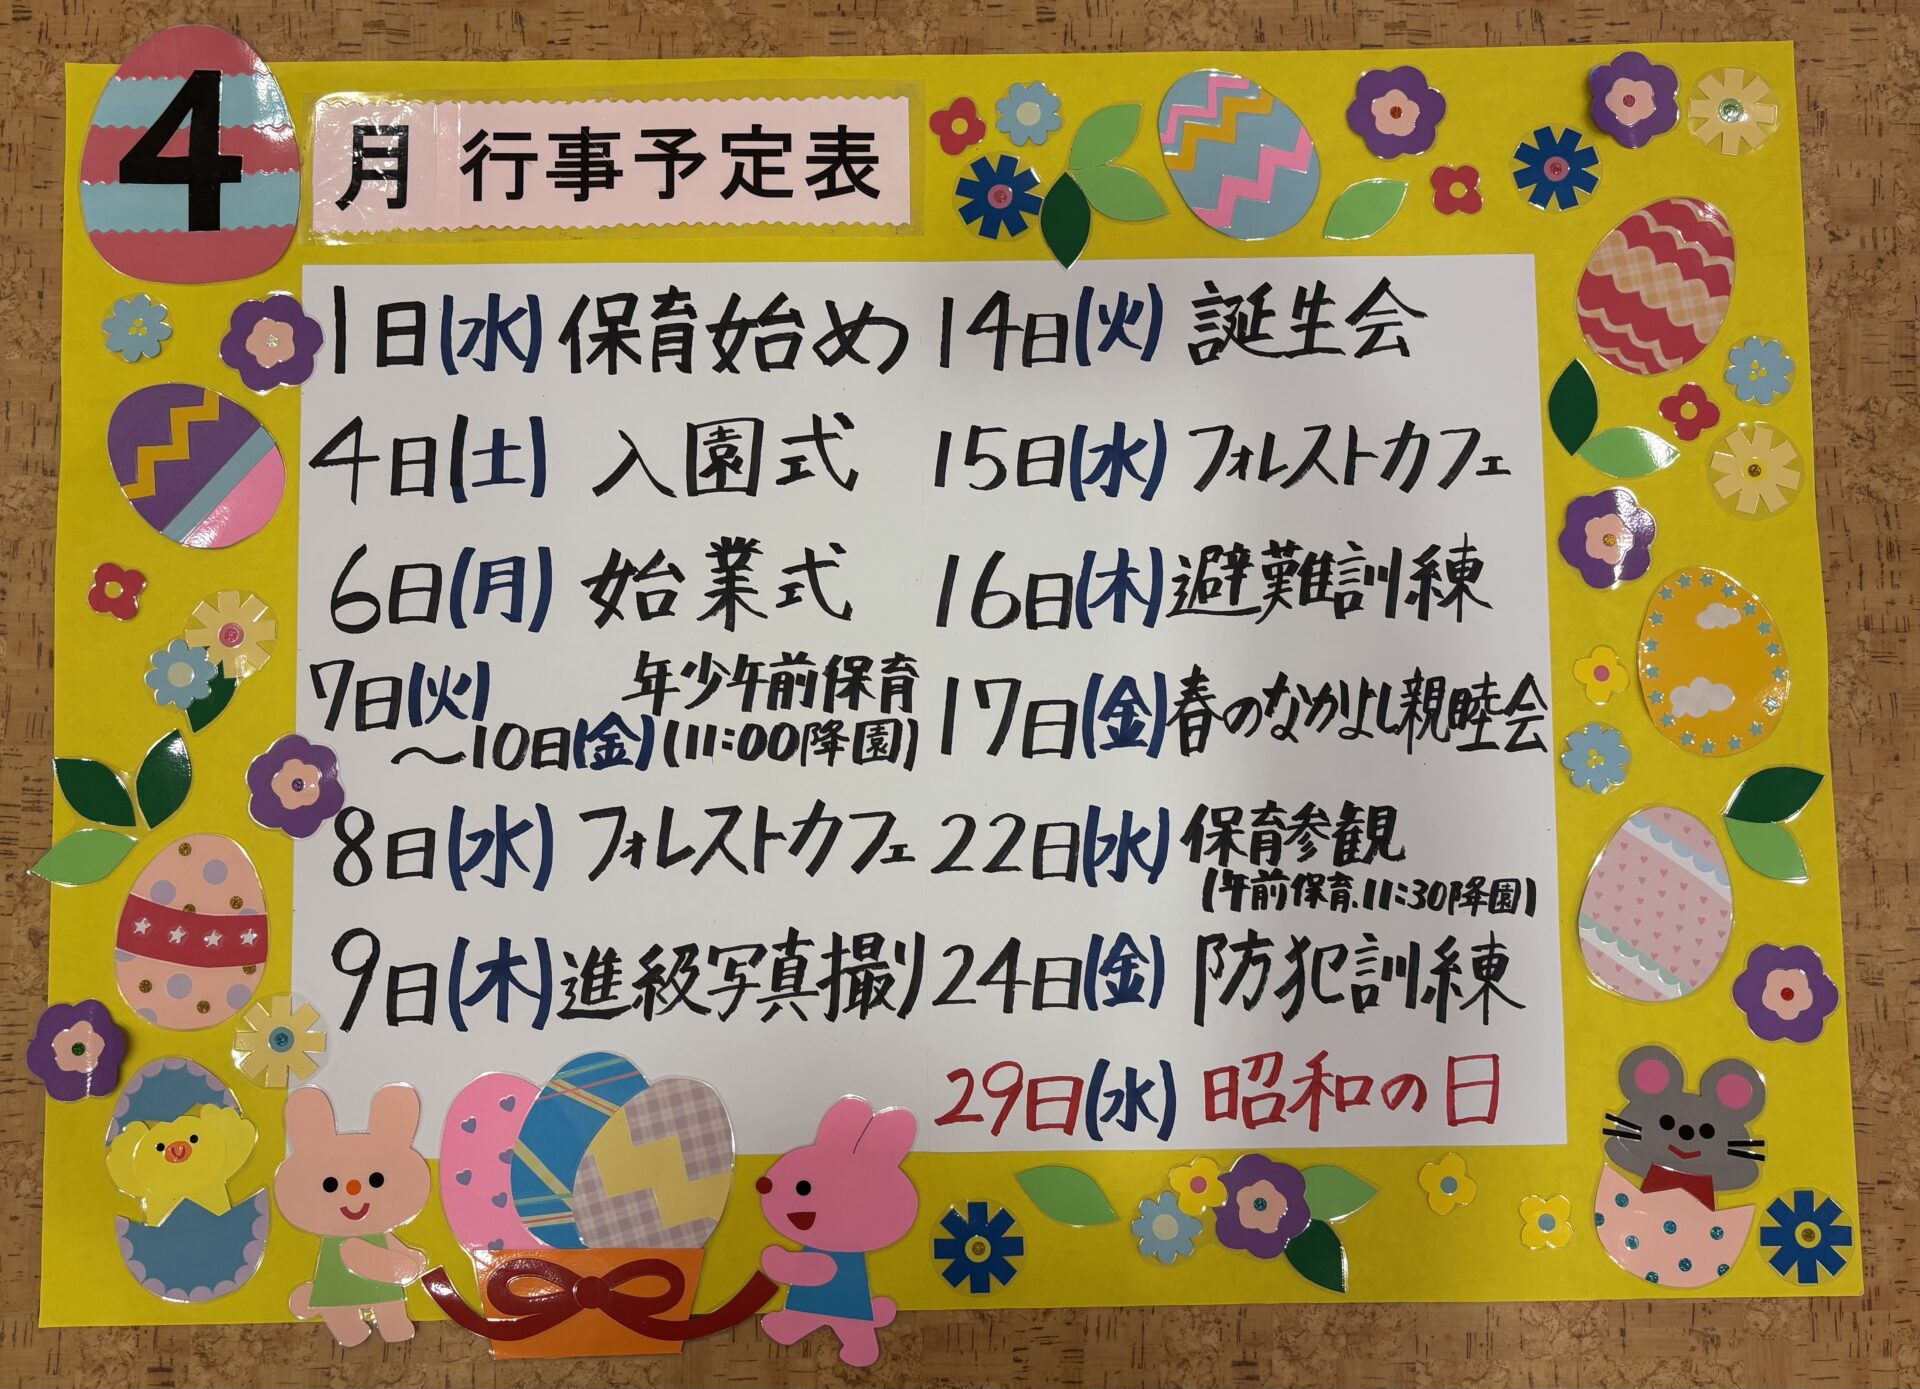 4月 行事予定表
1日(水) 保育始め
4日(土) 入園式
6日(月) 始業式
7日(火) 年少午前保育
〜10日(金) (11:00降園)
8日(水) フォレストカフェ
9日(木) 進級写真撮り
14日(火) 誕生会
15日(水) フォレストカフェ
16日(木) 避難訓練
17日(金) 春のなかよし親睦会
22日(水) 保育参観
(午前保育、11:30降園)
24日(金) 防犯訓練
29日(水) 昭和の日